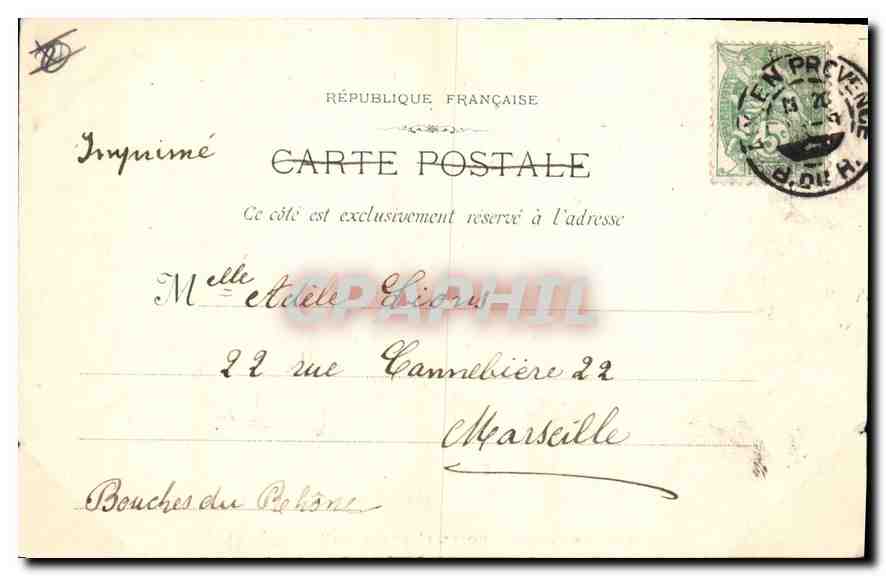 RÉPUBLIQUE FRANÇAISE
Imprimé
CARTE POSTALE
5c
AIX EN PROVENCE
B. DU R.
Ce côté est exclusivement réservé à l'adresse
CPAPHIL
Melle Adèle Lions
22 rue Cannebière 22
Marseille
Bouches du Rhône